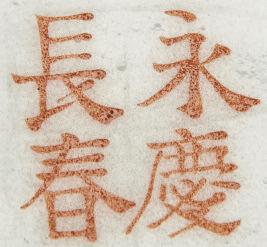 永慶
長春